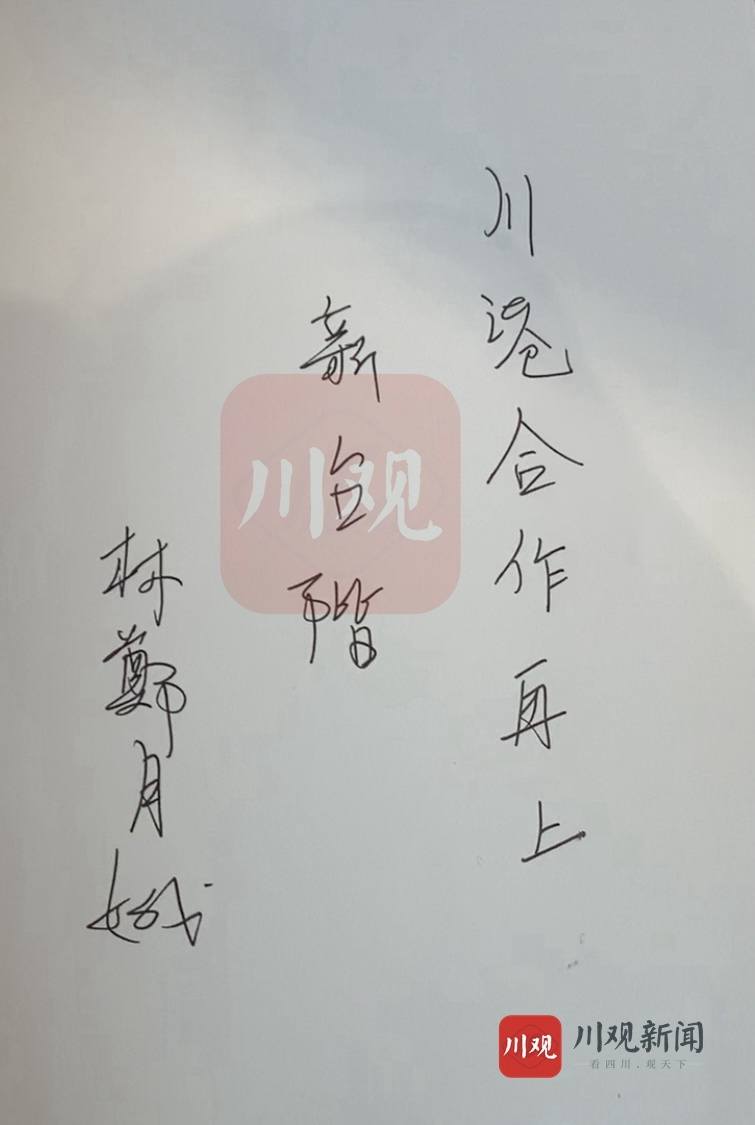 川港合作再上
新台階
林鄭月娥
川观
川观
川观新闻
看四川.观天下